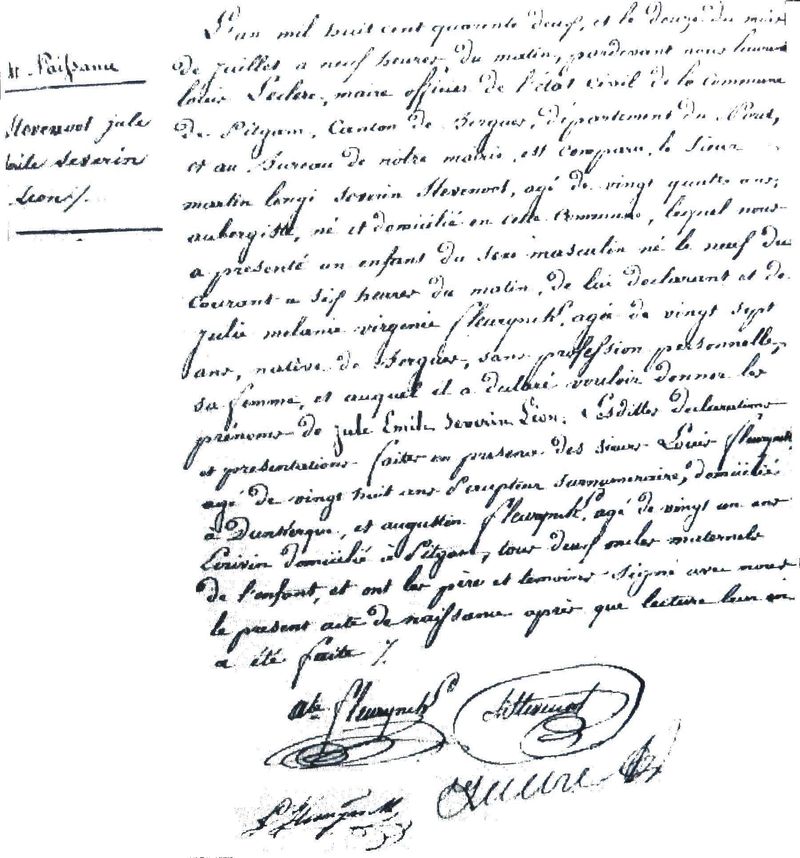 Naissance
Stevenoot jule
Emile Severin
Leon
L'an mil huit cent quarante deux, et le douze du mois
de juillet a neuf heures du matin, pardevant nous
Louis Leclerc, maire officier de l'état civil de la commune
de Pitgam, Canton de Bergues, département du Nord,
et au Bureau de notre mairie, est comparu le sieur
martin Severin Stevenoot, agé de vingt quatre ans,
aubergiste, né et domicilié en cette commune, lequel nous
a presenté un enfant du sexe masculin né le neuf du
courant a six heures du matin, de lui declarant et de
julie melanie virginie fleurynck, agée de vingt sept
ans, native de Bergues, sans profession personnelle,
sa femme, et auquel il a declaré vouloir donner les
prénoms de jule Emile Severin Léon. Lesdittes declarations
et presentations faites en presence des sieurs Louis fleurynck
agé de vingt huit ans surnumeraire, domicilié
à Dunkerque, et augustin fleurynck, agé de vingt un ans
Ecrivin domicilié à Pitgam, tous deux oncles maternels
de l'enfant, et ont les père et temoins signé avec nous
le present acte de naissance après que lecture leur en
a été faite
fleurynck
Stevenoot